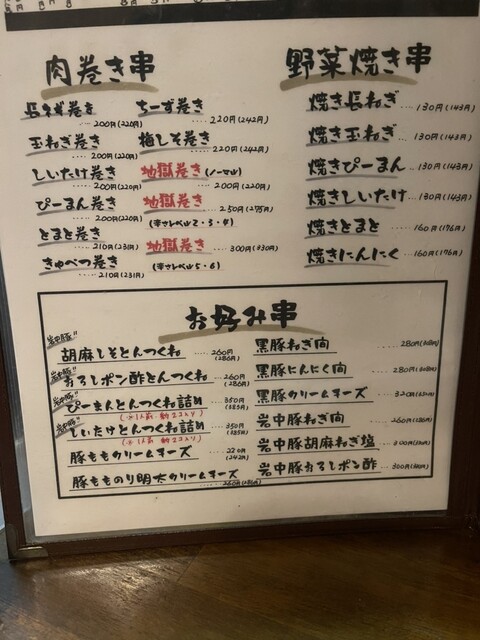 肉巻き串
長ネギ巻き
200円(220円)
玉ねぎ巻き
200円(220円)
しいたけ巻き
200円(220円)
ぴーまん巻き
200円(220円)
とまと巻き
210円(231円)
きゃべつ巻き
210円(231円)
ちーず巻き
220円(242円)
梅しそ巻き
220円(242円)
地獄巻き(ノーマル)
200円(220円)
地獄巻き 250円(275円)
(辛さレベル2・3・4)
地獄巻き 300円(330円)
(辛さレベル5・6)
野菜焼き串
焼き長ねぎ 130円(143円)
焼き玉ねぎ 130円(143円)
焼きぴーまん 130円(143円)
焼きしいたけ 130円(143円)
焼きとまと 160円(176円)
焼きにんにく 160円(176円)
お好み串
岩中豚!!
胡麻しそとんつくね 260円(286円)
岩中豚!!
おろしポン酢とんつくね 260円(286円)
岩中豚!!
ぴーまんとんつくね詰め 350円(385円)
岩中豚!!
しいたけとんつくね詰め 350円(385円)
豚ももクリームチーズ 220円(242円)
豚もものり明太クリームチーズ
260円(286円)
黒豚ねぎ間 280円(308円)
黒豚にんにく間 280円(308円)
黒豚クリームチーズ 320円
岩中豚ねぎ間 260円(286円)
岩中豚胡麻ねぎ塩 300円(330円)
岩中豚おろしポン酢 300円(330円)